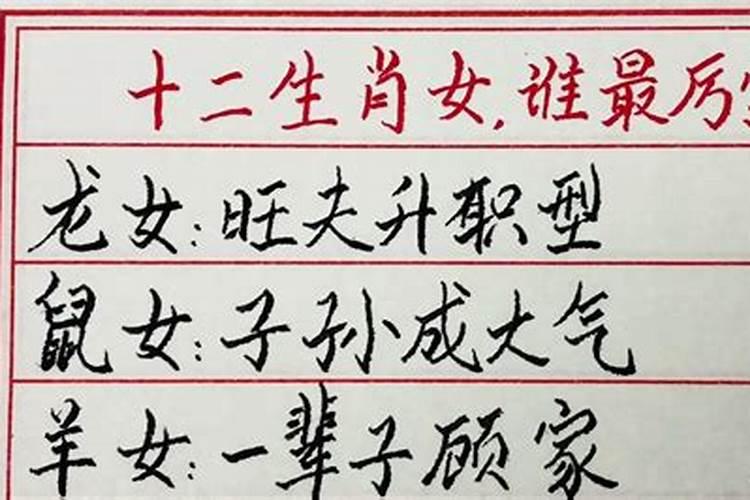 十二生肖女,谁最厉
龙女:旺夫升职型
鼠女:子孙成大气
羊女:一辈子顾家